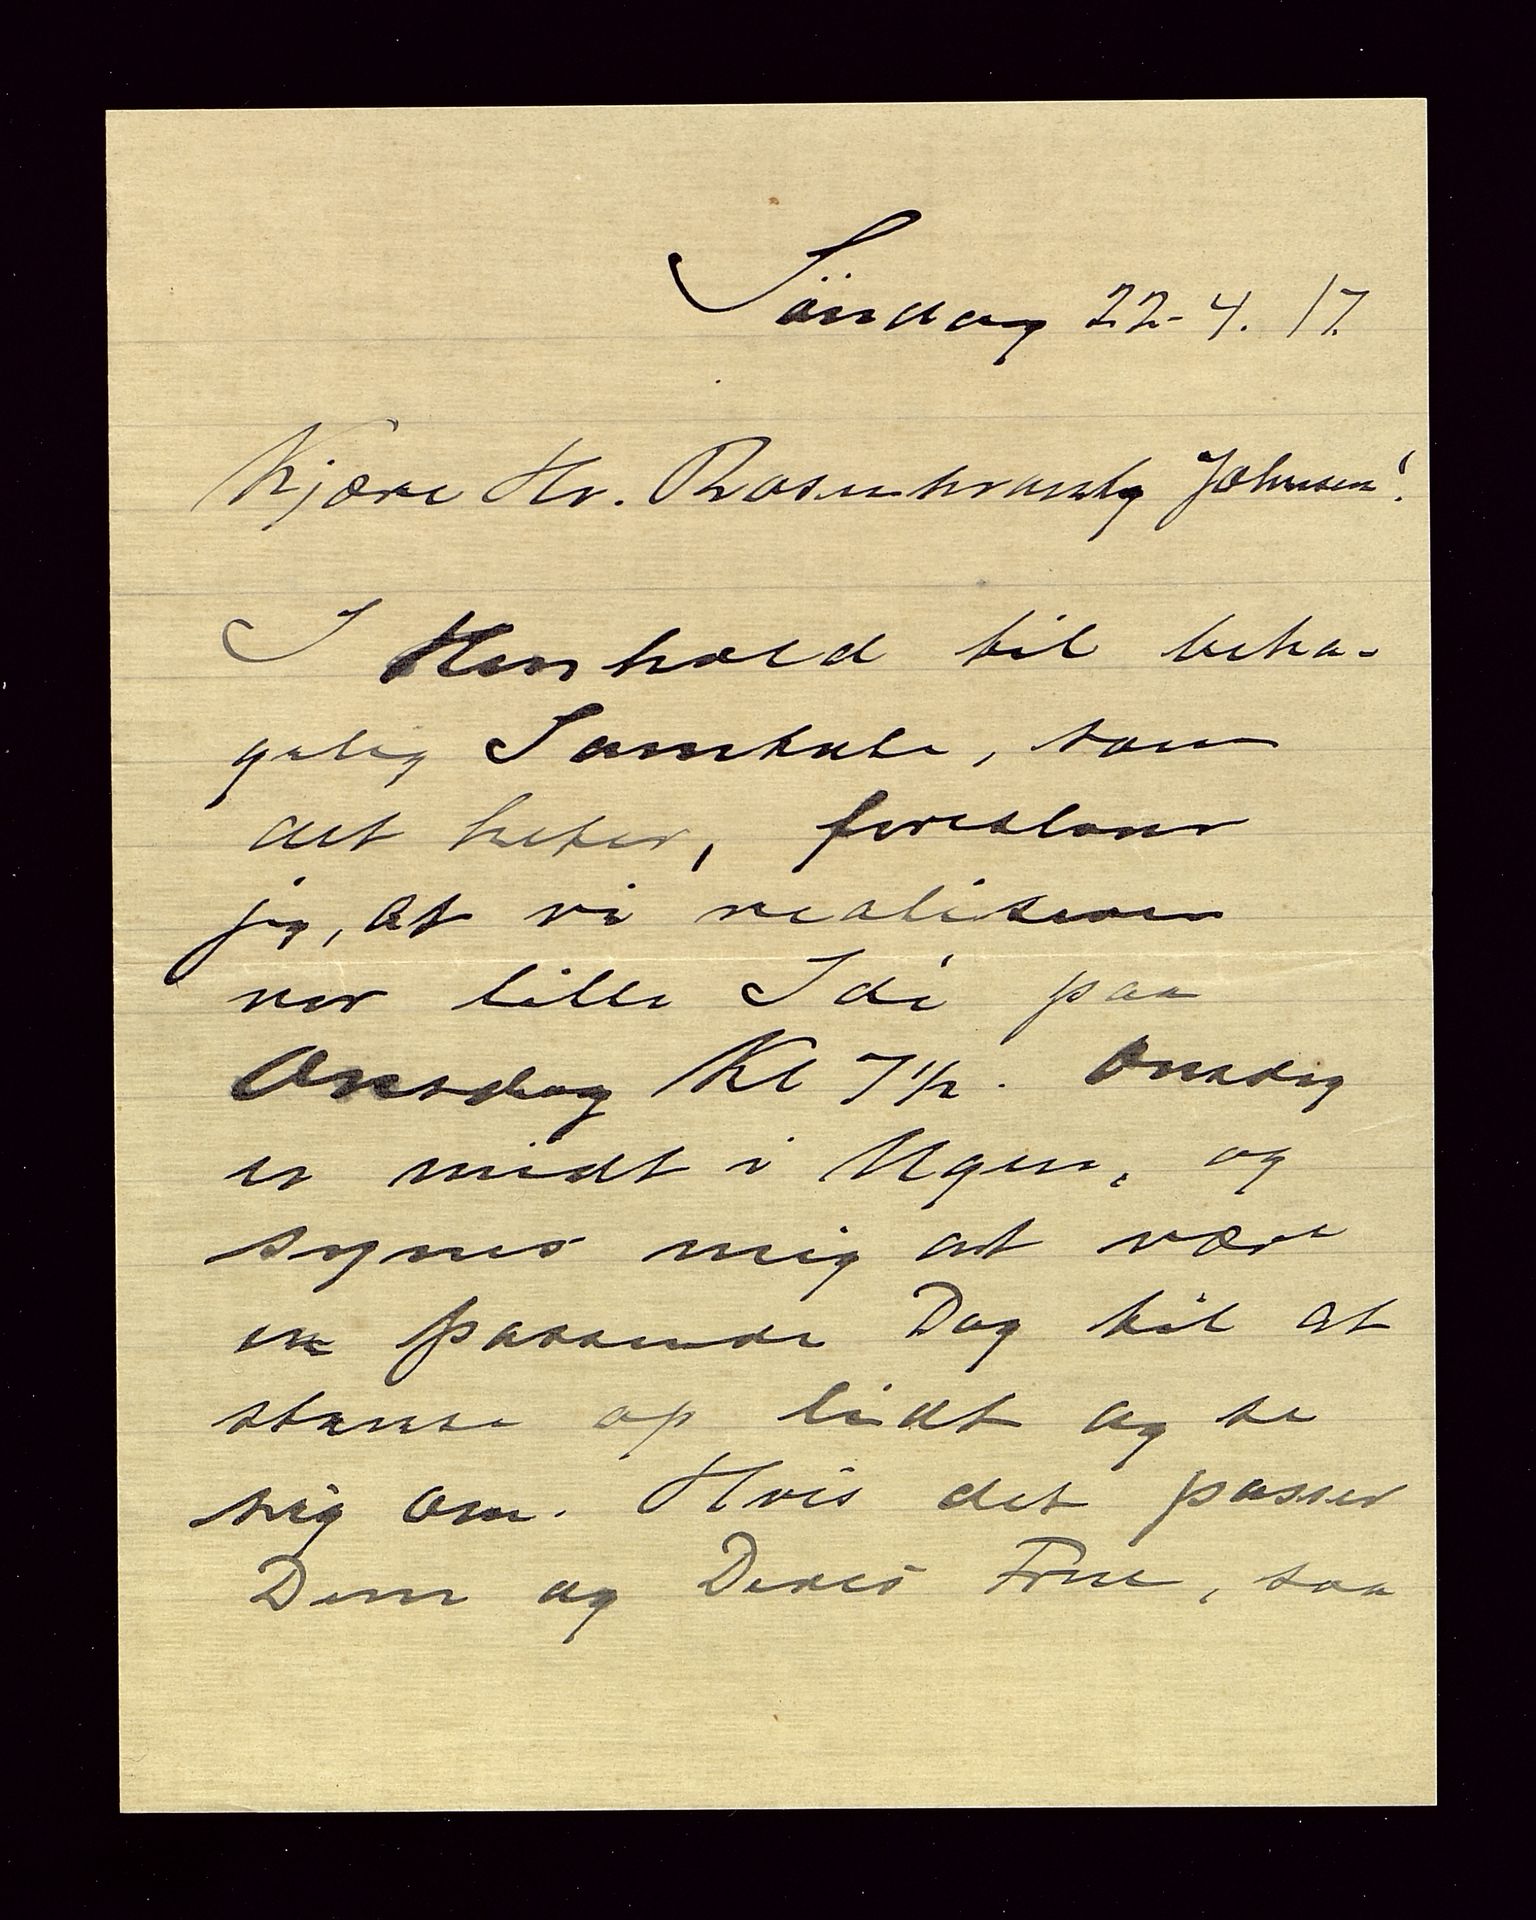 Söndag 22-4. 17.
Kjære Hr. Rosenkrantz Johnsen!
I Henhold til beha-
gelig Samtale, som
det heter, foreslaar
jeg, at vi realiserer
vor lille Idé paa
Onsdag Kl 7 1/2. Onsdag
er midt i Ugen, og
synes mig at være
en passende Dag til at
stanse op lidt og se
sig om. Hvis det passer
Dem og Deres Frue, saa